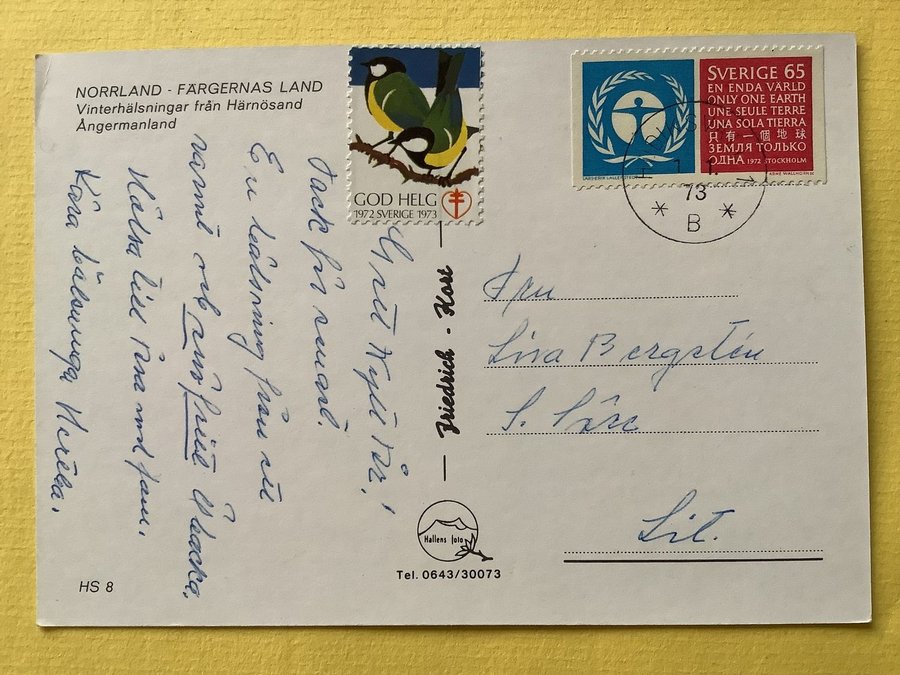 NORRLAND - FÄRGERNAS LAND
Vinterhälsningar från Härnösand
Ångermanland
GOD HELG
1972 SVERIGE 1973
SVERIGE 65
EN ENDA VÄRLD
ONLY ONE EARTH
UNE SEULE TERRE
UNA SOLA TIERRA
只有一個地球
ЗЕМЛЯ ТОЛЬКО
ОДНА 1972 STOCKHOLM
73
* B *
Gott Nytt År!
Tack för
En hälsning från ett
och
Hälsa till Nna med fam.
Kära hälsningar
Friedrich - Kort
Hallens foto
Tel. 0643/30073
HS 8
Fru
Lisa Bergstén
S. Söre
Lit.